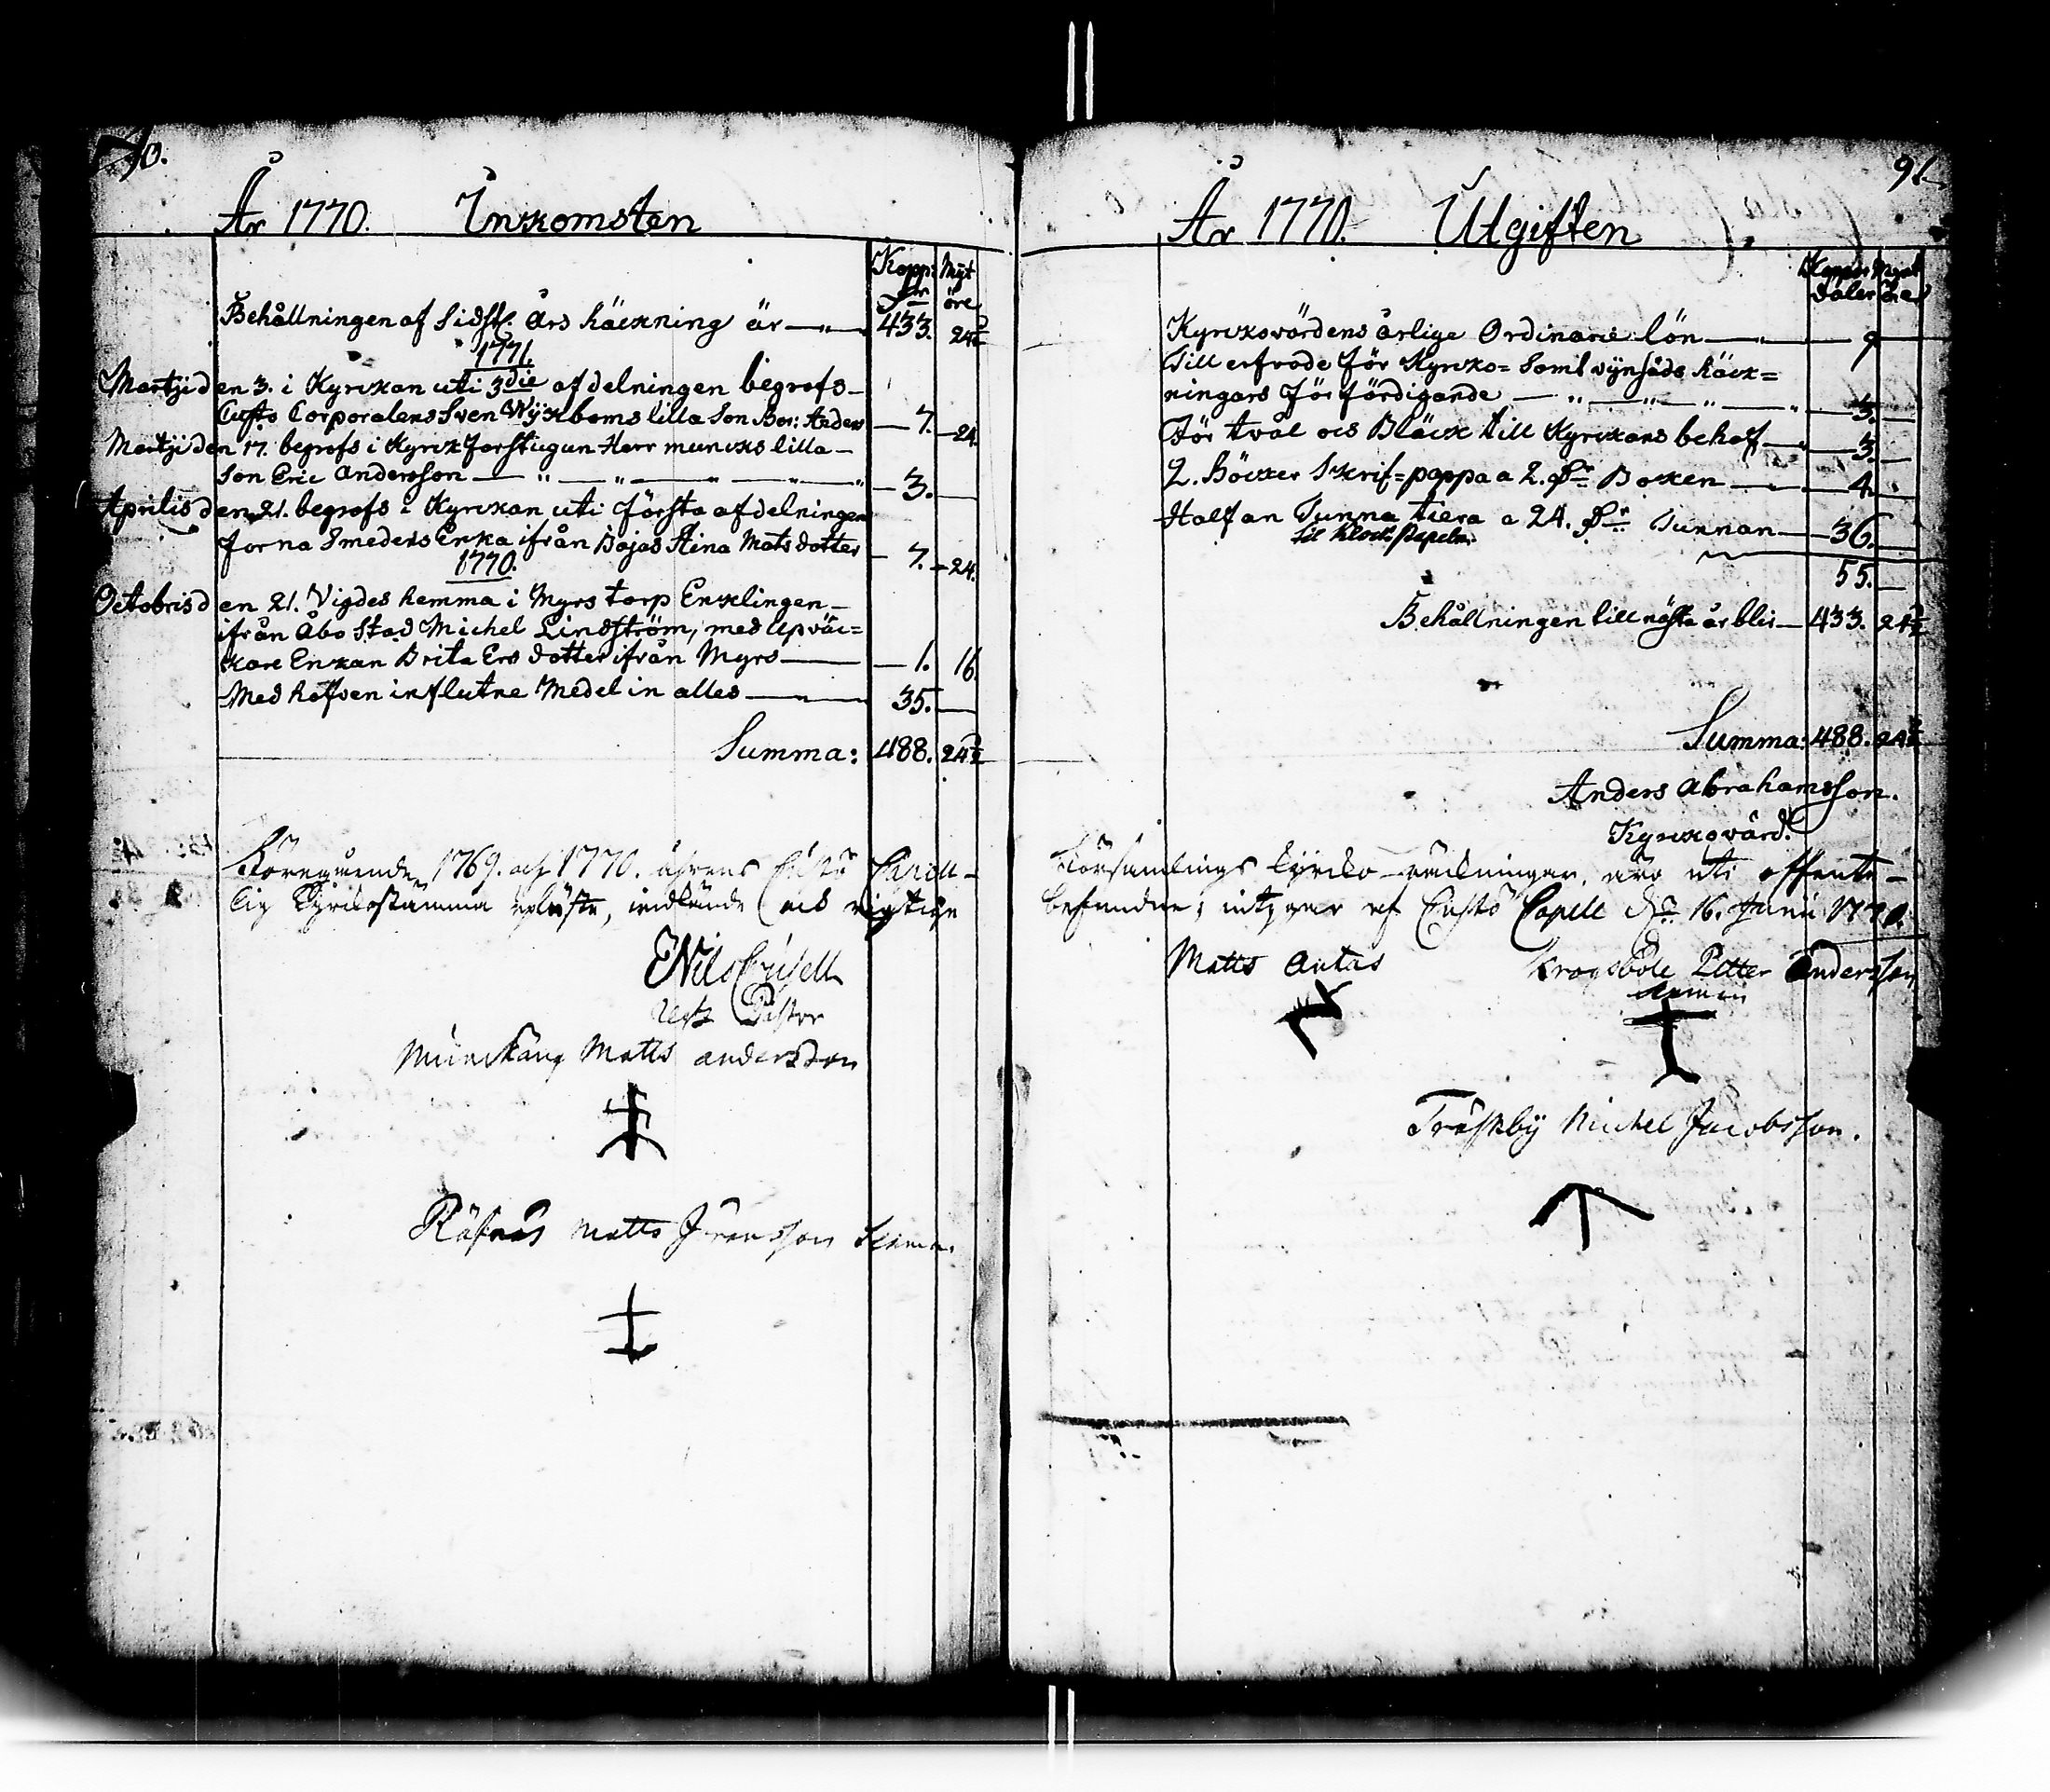 90.
År 1770. Inkomsten
Kopp: Mÿt
öre
Behållningen af Sidst. års Räckning är — 433. 24½
1771.
Martji den 3. i Kyrckan uti 3die afdelningen begrofs —
Custo Corporalens Sven Wijkboms lilla Son Anders — 7. 24.
Martji den 17. begrofs i Kyrck forstugun Herr muncks lilla —
Son Eric Andersson — 3. —
Aprilis den 21. begrofs i Kyrckan uti Första afdelningen
forna Smedens Enka ifrån Bojas Aina Mats dotter — 7. 24.
1770.
Octobris den 21. Vigdes hemma i Myrs torp Encklingen —
ifrån Åbo Stad Michel Lindström, med Upväc=
kare Enkan Brita Ers dotter ifrån Myrs — 1. 16
Med hofven influtne Medel in alles — 35. —
Summa: 488. 24½
1769. och 1770. åhrens Custö Capell-
lig Kyrckostamma upläste, och rigtige
Nils
Pastor
Matts andersson
Räfsnäs Matts
91.
År 1770. Utgiften
Koppar Mynt
daler öre
Kyrckovärdens årlige Ordinarie lön — 9
Till erfrode För Kyrcko= Samt vijnsäds Räck=
ningars För färdigande — 3. —
För tvål ocs Bläck till Kyrckans behof — 3. —
2. Böcker Skrif=pappa a 2. Dr Boken — 4.
Half an Tunna tiera a 24. Dr Tunnan — 36.
til Klock Stapeln.
55. —
Behållningen till nästa år blir — 433. 24½
Summa: 488. 24½
Anders Abrahamsson.
Kyrckovärd.
Församlings Kyrcko-räckningar, äro uti offente-
befundne; intygar af Custö Capell d. 16. Junii
Matts Antas
Krogsböle Petter Andersson
Träskby Michel Jacobsson.